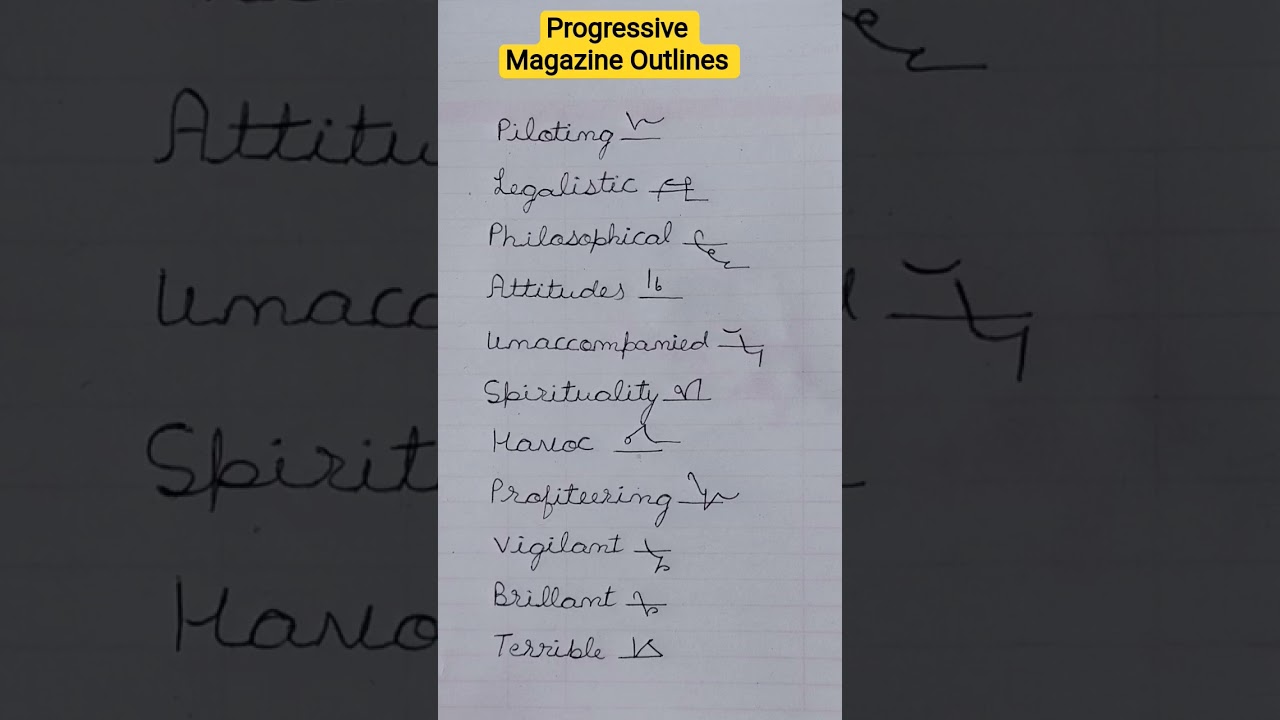 Progressive
Magazine Outlines
Piloting
Legalistic
Philosophical
Attitudes
Unaccompanied
Spirituality
Havoc
Profiteering
Vigilant
Brillant
Terrible
Attitu
Unacco
Spirit
Havo